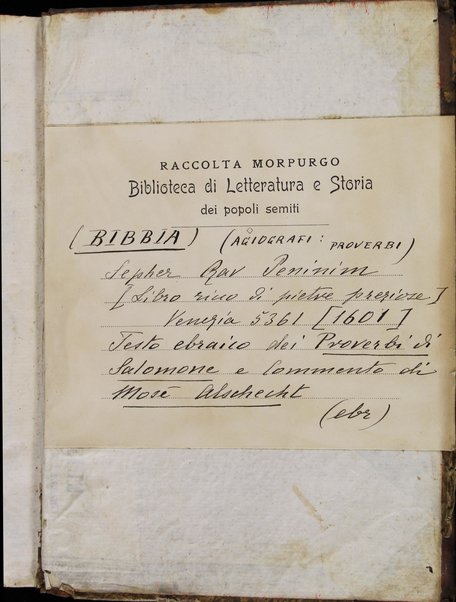 RACCOLTA MORPURGO
Biblioteca di Letteratura e Storia
dei popoli semiti
(BIBBIA) (AGIOGRAFI: PROVERBI)
Sepher Rav Peninim
[Libro ricco di pietre preziose]
Venezia 5361 [1601]
Testo ebraico dei Proverbi di
Salomone e Commento di
Mosè Alschecht
(ebr)